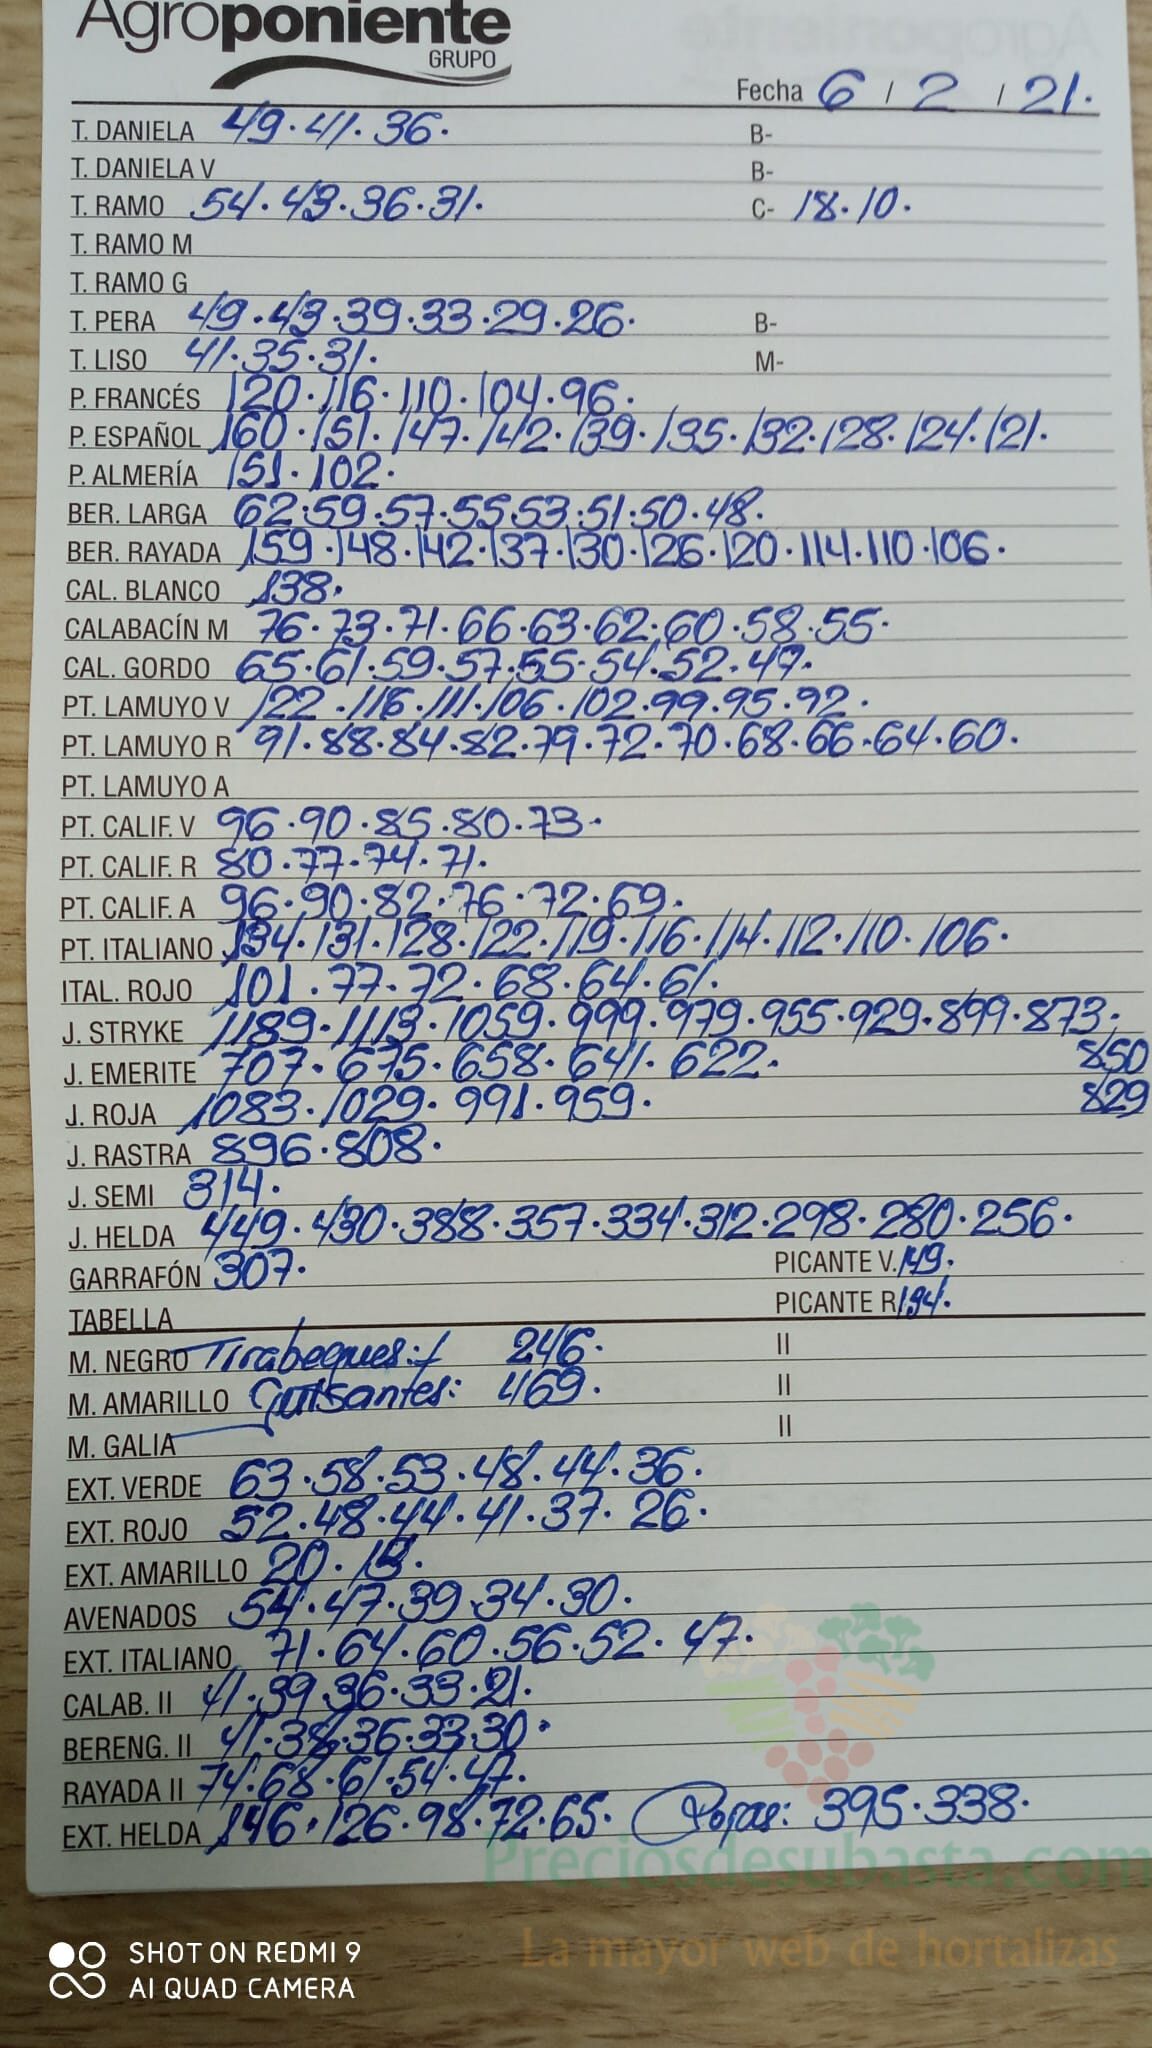 Agroponiente
GRUPO
Fecha 6 / 2 / 21.
T. DANIELA 49. 41. 36. B-
T. DANIELA V B-
T. RAMO 54. 43. 36. 31. C- 18. 10.
T. RAMO M
T. RAMO G
T. PERA 49. 43. 39. 33. 29. 26. B-
T. LISO 41. 35. 31. M-
P. FRANCÉS 120. 116. 110. 104. 96.
P. ESPAÑOL 160. 151. 147. 142. 139. 135. 132. 128. 124. 121.
P. ALMERÍA 151. 102.
BER. LARGA 62. 59. 57. 55. 53. 51. 50. 48.
BER. RAYADA 159. 148. 142. 137. 130. 126. 120. 114. 110. 106.
CAL. BLANCO 138.
CALABACÍN M 76. 73. 71. 66. 63. 62. 60. 58. 55.
CAL. GORDO 65. 61. 59. 57. 55. 54. 52. 47.
PT. LAMUYO V 122. 116. 111. 106. 102. 99. 95. 92.
PT. LAMUYO R 91. 88. 84. 82. 79. 72. 70. 68. 66. 64. 60.
PT. LAMUYO A
PT. CALIF. V 96. 90. 85. 80. 73.
PT. CALIF. R 80. 77. 74. 71.
PT. CALIF. A 96. 90. 82. 76. 72. 69.
PT. ITALIANO 134. 131. 128. 122. 119. 116. 114. 112. 110. 106.
ITAL. ROJO 101. 77. 72. 68. 64. 61.
J. STRYKE 1189. 1113. 1059. 999. 979. 955. 929. 899. 873.
J. EMERITE 707. 675. 658. 641. 622. 850
J. ROJA 1083. 1029. 991. 959. 829
J. RASTRA 896. 808.
J. SEMI 314.
J. HELDA 449. 430. 388. 357. 334. 312. 298. 280. 256.
GARRAFÓN 307. PICANTE V. 149.
TABELLA PICANTE R 194.
M. NEGRO Tirabeques: 246. II
M. AMARILLO Guisantes: 469. II
M. GALIA II
EXT. VERDE 63. 58. 53. 48. 44. 36.
EXT. ROJO 52. 48. 44. 41. 37. 26.
EXT. AMARILLO 20.
AVENADOS 54. 47. 39. 34. 30.
EXT. ITALIANO 71. 64. 60. 56. 52. 47.
CALAB. II 41. 39. 36. 33. 21.
BERENG. II 41. 38. 36. 33. 30.
RAYADA II 74. 68. 61. 54. 47.
EXT. HELDA 146. 126. 98. 72. 65. Rojas: 395. 338.
Preciosdesubasta.com
La mayor web de hortalizas
SHOT ON REDMI 9
AI QUAD CAMERA